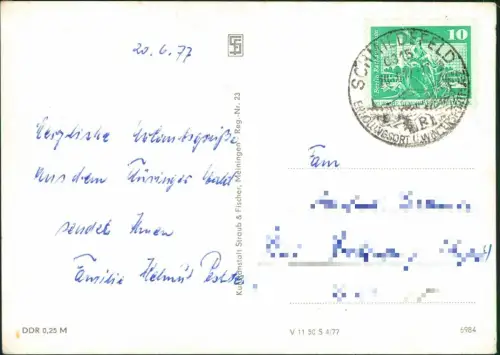 20.6.77
Herzliche Urlaubsgrüße
aus dem Thüringer Wald
sendet Ihnen
Familie Helmut
Kunstanstalt Straub & Fischer, Meiningen Reg.-Nr. 23
10
SCHMIEDEFELD
ERHOLUNGSORT U. WINTERSPORT
Fam
DDR 0,25 M
V 11 30 S 4/77
5984